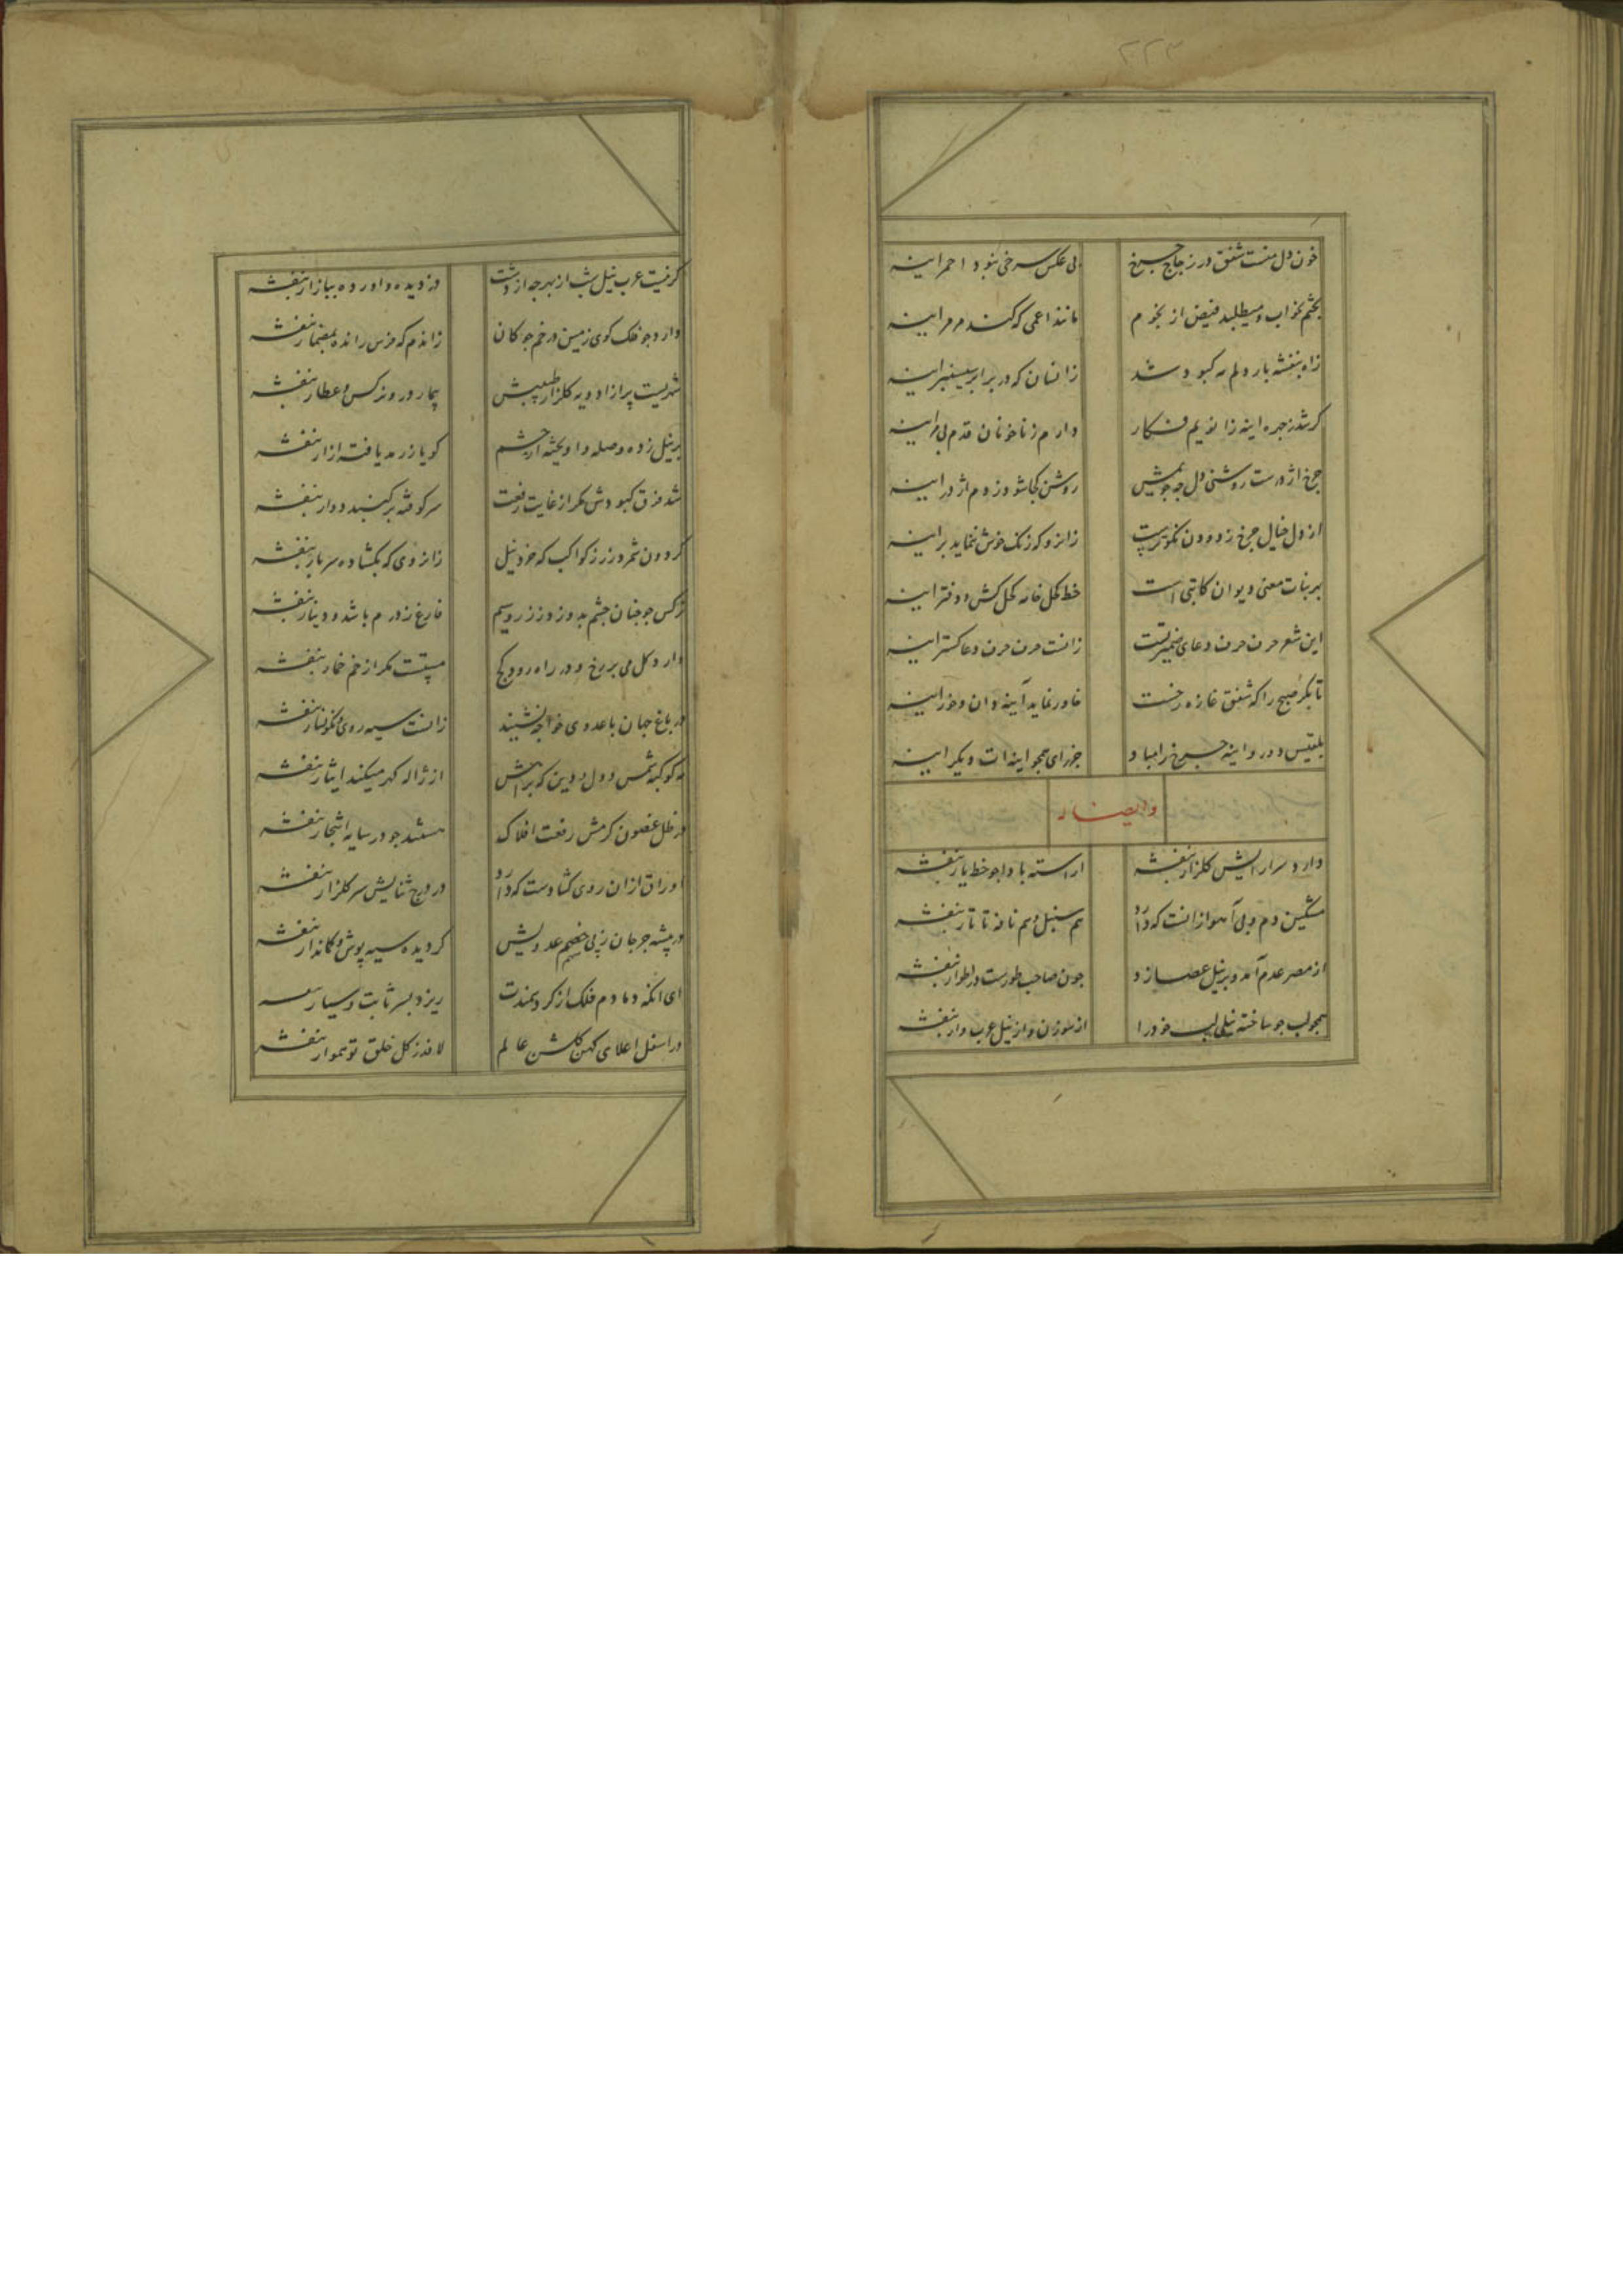 ۲۲۳
خون دل منست شفق در زجاج چرخ
بی عکس سرخی نبود احمر اینه
بختم بخواب و میطلبد فیض از نجوم
مانند اعمی که کند مرمر اینه
زاه بنفشه بار دلم مه کبود شد
زانسان که در برابر سیسنبر اینه
کر شد زجره اینه زانویم فکار
دارم ز ناخنان قدم بی مر اینه
چرخ اژدرست روشنی دل چه جویمش
روشن کجا شود ز دم اژدر اینه
از دل خیال چرخ زدودن نکوترست
زانرو که زنک خوش ننماید بر اینه
بر بنات معنی دیوان کاتبی است
خط کحل خامه کحل کش و دفتر اینه
این شعر حرف حرف دعای ضمیر تست
زانست حرف حرف دعا کستر اینه
تا بکر صبح را که شفق غازه رخست
خاور نماید آینه دان و خور اینه
بلقیس دور و اینه چرخ را مباد
جز رای همچو اینه ات دیکر اینه
وایضا له
دارد سر ارایش کلزار بنفشه
اراسته باد چو خط یار بنفشه
مشکین دم و بی آهو ازانست که دارد
هم سنبل و هم نافه تاتار بنفشه
از مصر عدم آمد و بر نیل عصا زد
چون صاحب طورست در اطوار بنفشه
همچو لب جو ساخته نیلی لب خود را
از سوزن و از نیل عرب وار بنفشه
کر نیست عرب نیل شب از بهر چه از دشت
دزدیده و اورده ببازار بنفشه
دارد چو فلک کوی زمین در خم چوکان
زاندم که فرس رانده بمضمار بنفشه
شد بیت پر از ادویه کلزار طبیبش
بیمار درو نرکس و عطار بنفشه
بر نیل زده وصله و اویخته از چشم
کویا ز رمد یافته ازار بنفشه
شد فرق کبودش مکر از غایت رفعت
سر کوفته بر کنبد دوار بنفشه
کردون شمرد زر ز کواکب که خرد نیل
زانروی که بکشاده سر بار بنفشه
نرکس چو جنان چشم بدوزد ز زر و سیم
فارغ ز درم باشد و دینار بنفشه
دارد کل می بر رخ و در راه رود کج
مستست مکر از خم خمار بنفشه
در باغ جهان با عدوی خواجه نشیند
زانست سیه روی و نکونسار بنفشه
مه کوکبه شمس دول و دین که براهش
از ژاله کهر میکند ایثار بنفشه
در ظل غصون کرمش رفعت افلاک
هستند چو در سایه اشجار بنفشه
اوراق ازان روی کشادست که دارد
در درج ثنایش سر کلزار بنفشه
در بیشه جرجان ز پی خصم عدویش
کردیده سیه پوش و کماندار بنفشه
ای انکه دمادم فلک از کرد سمندت
ریزد بسر ثابت و سیار بنفشه
در اسفل اعلای کهن کلشن عالم
لافد ز کل خلق تو هموار بنفشه